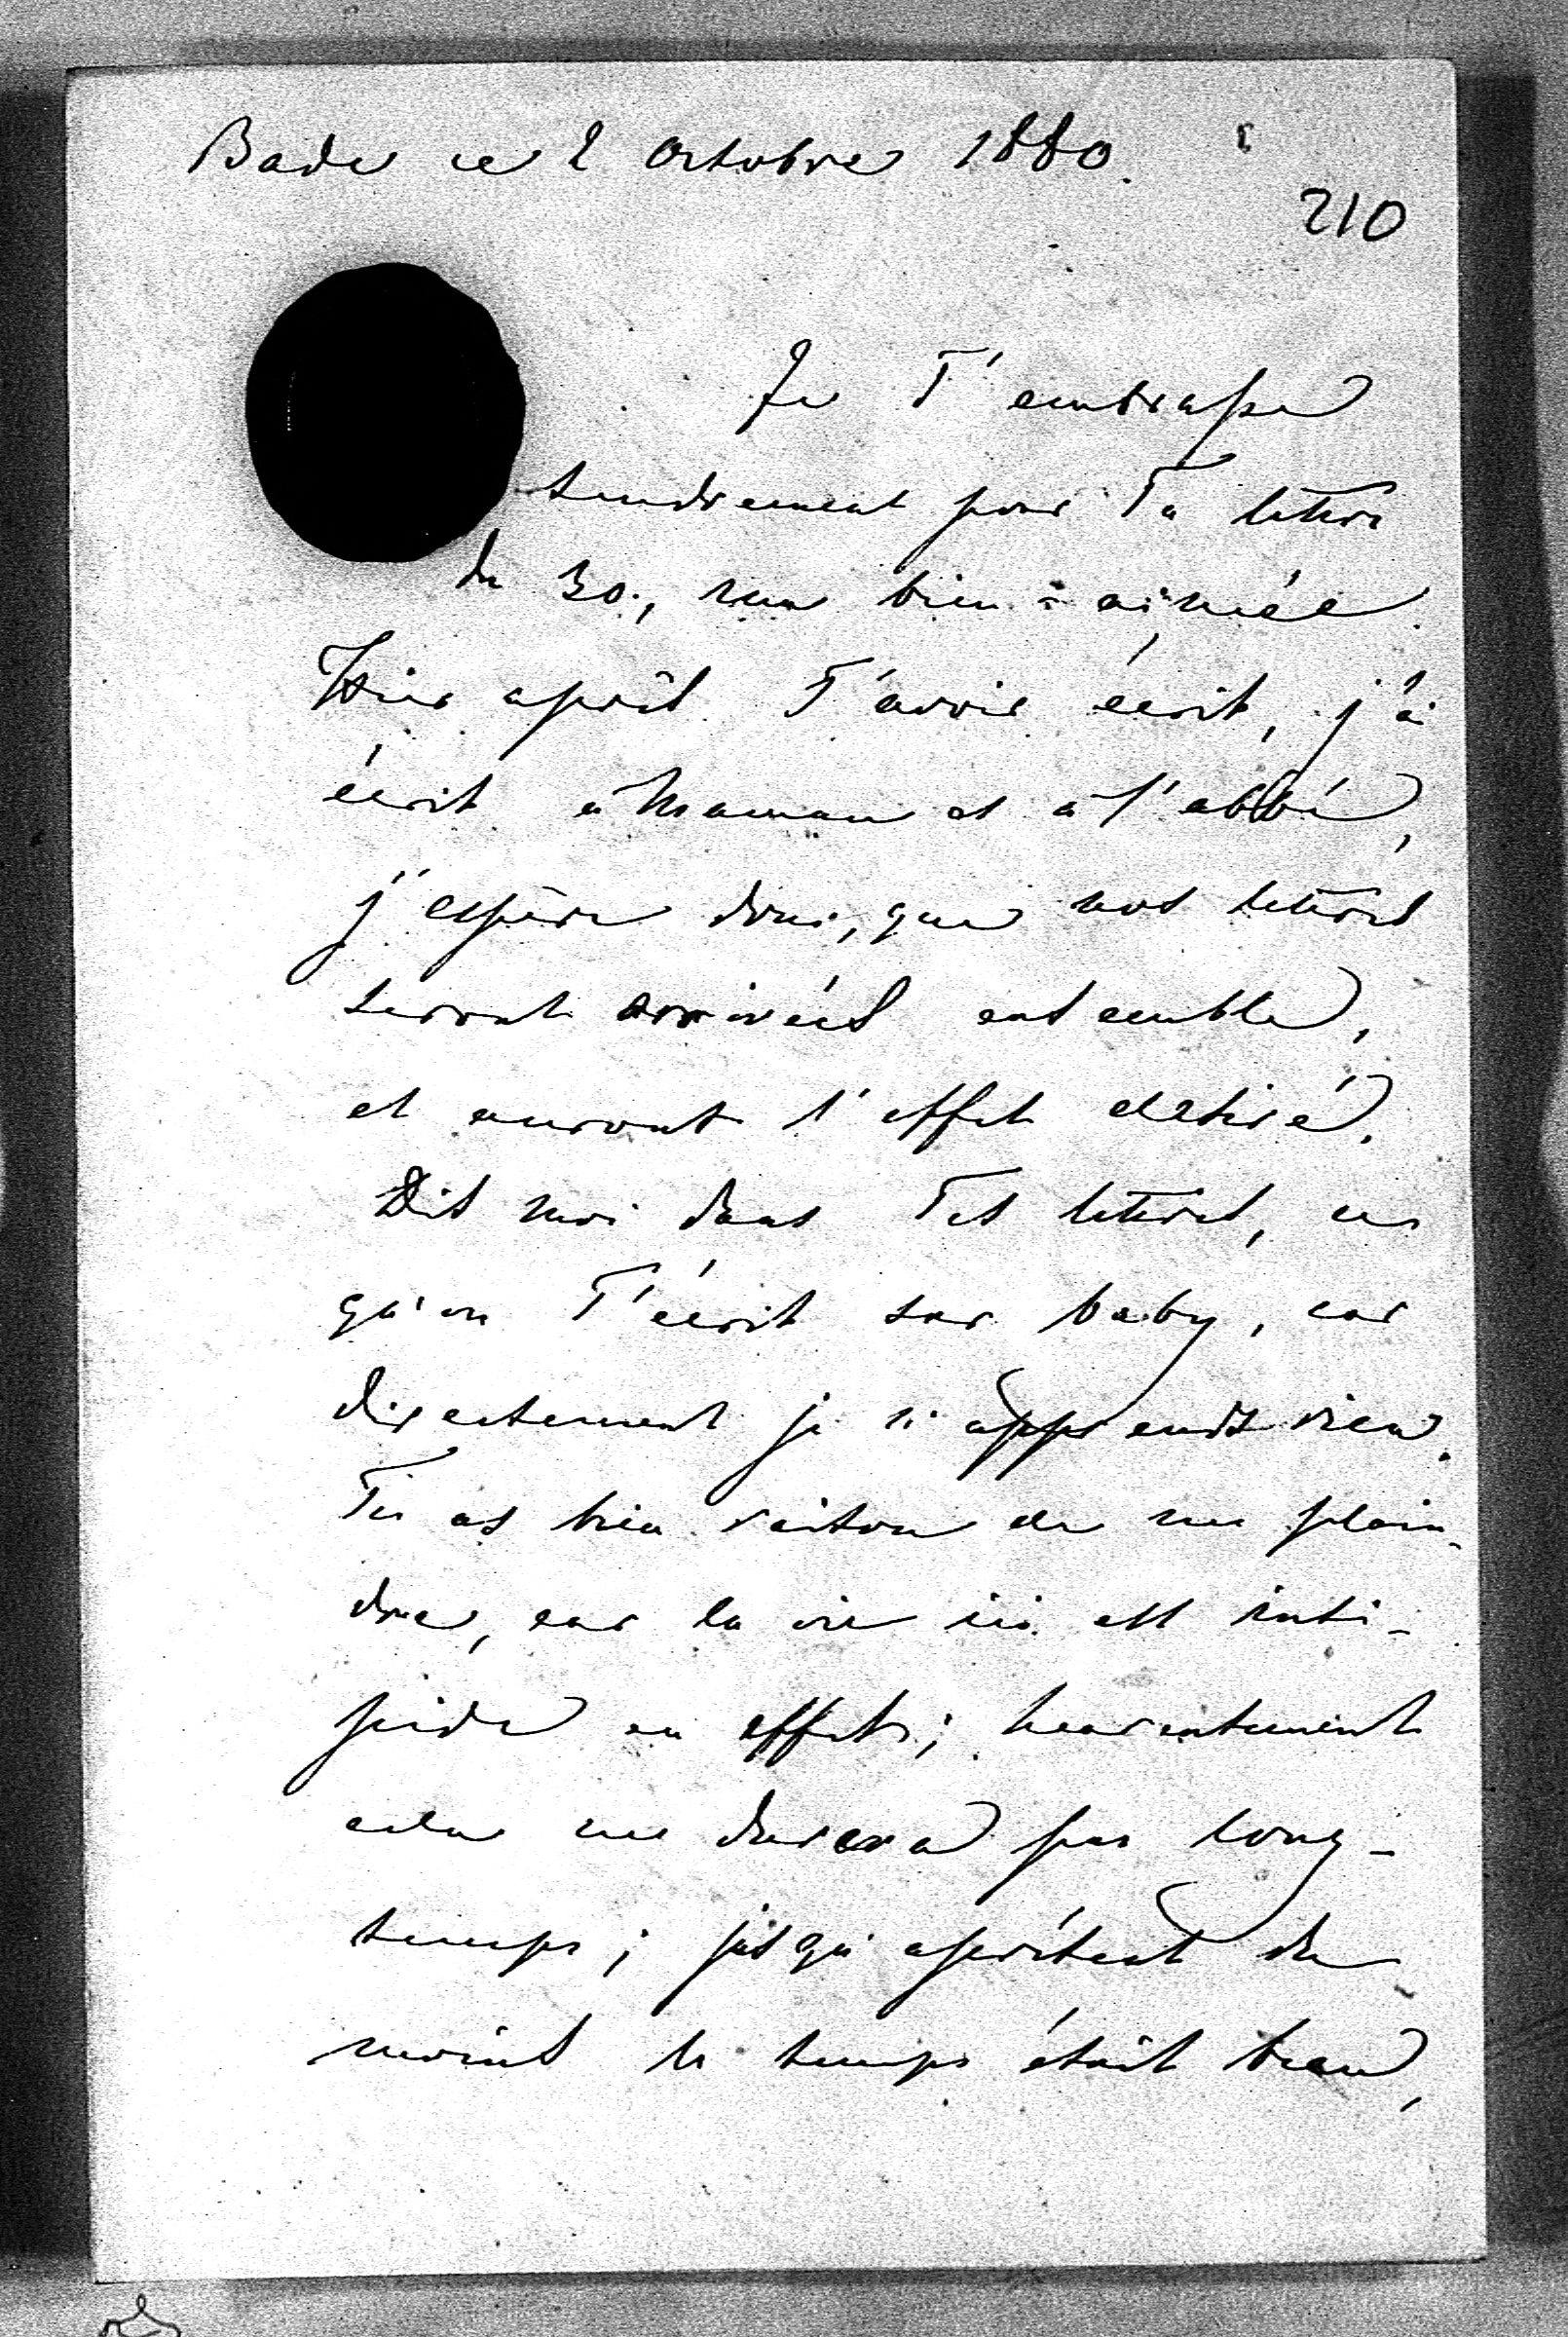 Bade ce 2 Octobre 1880.
210
Je T'embrasse
tendrement pour Ta lettre
du 30., ma bien-aimée.
Hier après T'avoir écrit, j'ai
écrit à Maman et à l'abbé,
j'espère donc, que nos lettres
seront arrivées ensemble,
et auront l'effet desiré.
Dis moi dans Tes lettres, ce
qu'on T'écrit sur baby, car
directement je n'apprends rien.
Tu as bien raison de me plain-
dre, car la vie ici est insi-
pide en effet; heureusement
cela ne durera pas long-
temps; jusqu'à présent du
moins le temps était beau,